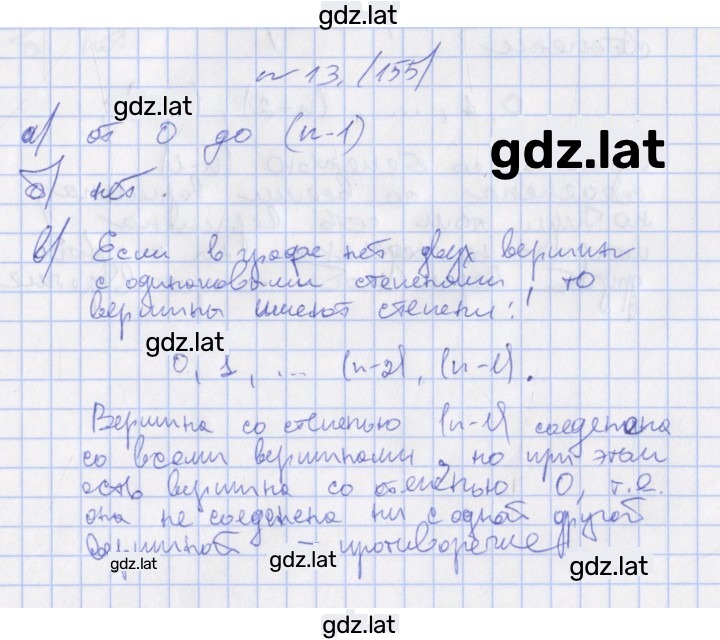 gdz.lat
№ 13. (155)
gdz.lat
а) от 0 до (n-1)
gdz.lat
б) нет.
в) Если в графе нет двух вершин
с одинаковыми степенями, то
вершины имеют степени:
gdz.lat
0, 1, ... (n-2), (n-1).
Вершина со степенью (n-1) соеденена
со всеми вершинами, но при этом
есть вершина со степенью 0, т.е.
она не соеденена ни с одной другой
вершиной - противоречие
gdz.lat gdz.lat gdz.lat
gdz.lat